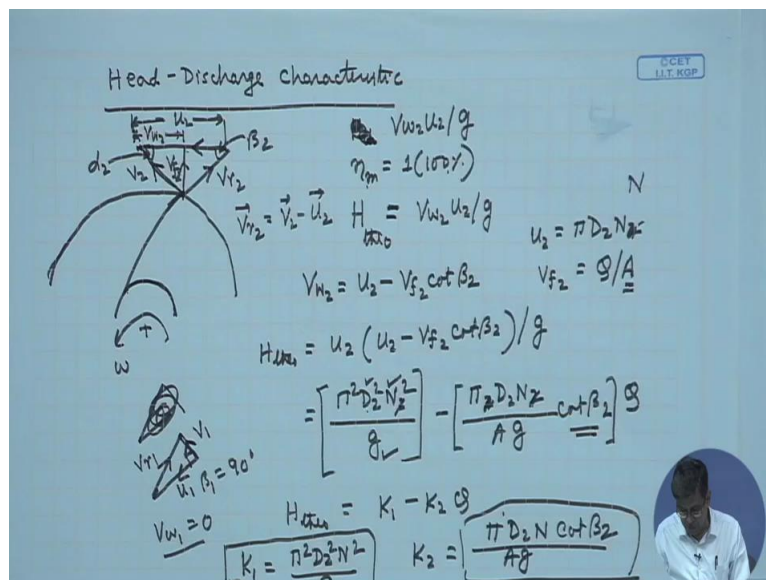 Head-Discharge Characteristic
CCET
I.I.T. KGP
U2
Vw2
β2
α2
V2
Vf2
Vr2
Vr2 = V2 - U2
Vw2 U2/g
ηm = 1 (100%)
H theo = Vw2 U2/g
N
U2 = πD2N
Vf2 = Q/A
Vw2 = U2 - Vf2 cot β2
H theo = U2 (U2 - Vf2 cot β2)/g
ω
= [π²D2²N²/g] - [πD2N/Ag cot β2] Q
V1
Vr1
U1
β1 = 90°
Vw1 = 0
H theo = K1 - K2 Q
K1 = π²D2²N²
K2 = πD2N cot β2/Ag